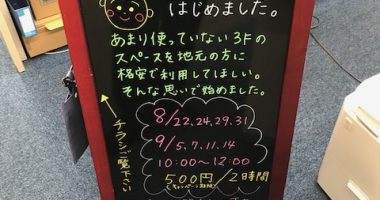 はじめました。
あまり使っていない3Fの
スペースを地元の方に
格安で利用してほしい。
そんな思いで始めました。
8/22,24,29,31
9/5,7,11,14
10:00〜12:00
500円/2時間
(キャンペーン期間)
チラシご覧下さい